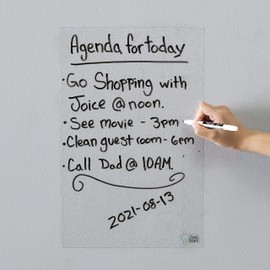 Agenda for today
· Go Shopping with
Joice @ noon.
· See movie - 3pm
· Clean guest room - 6pm
· Call Dad @ 10AM.
2021-08-13